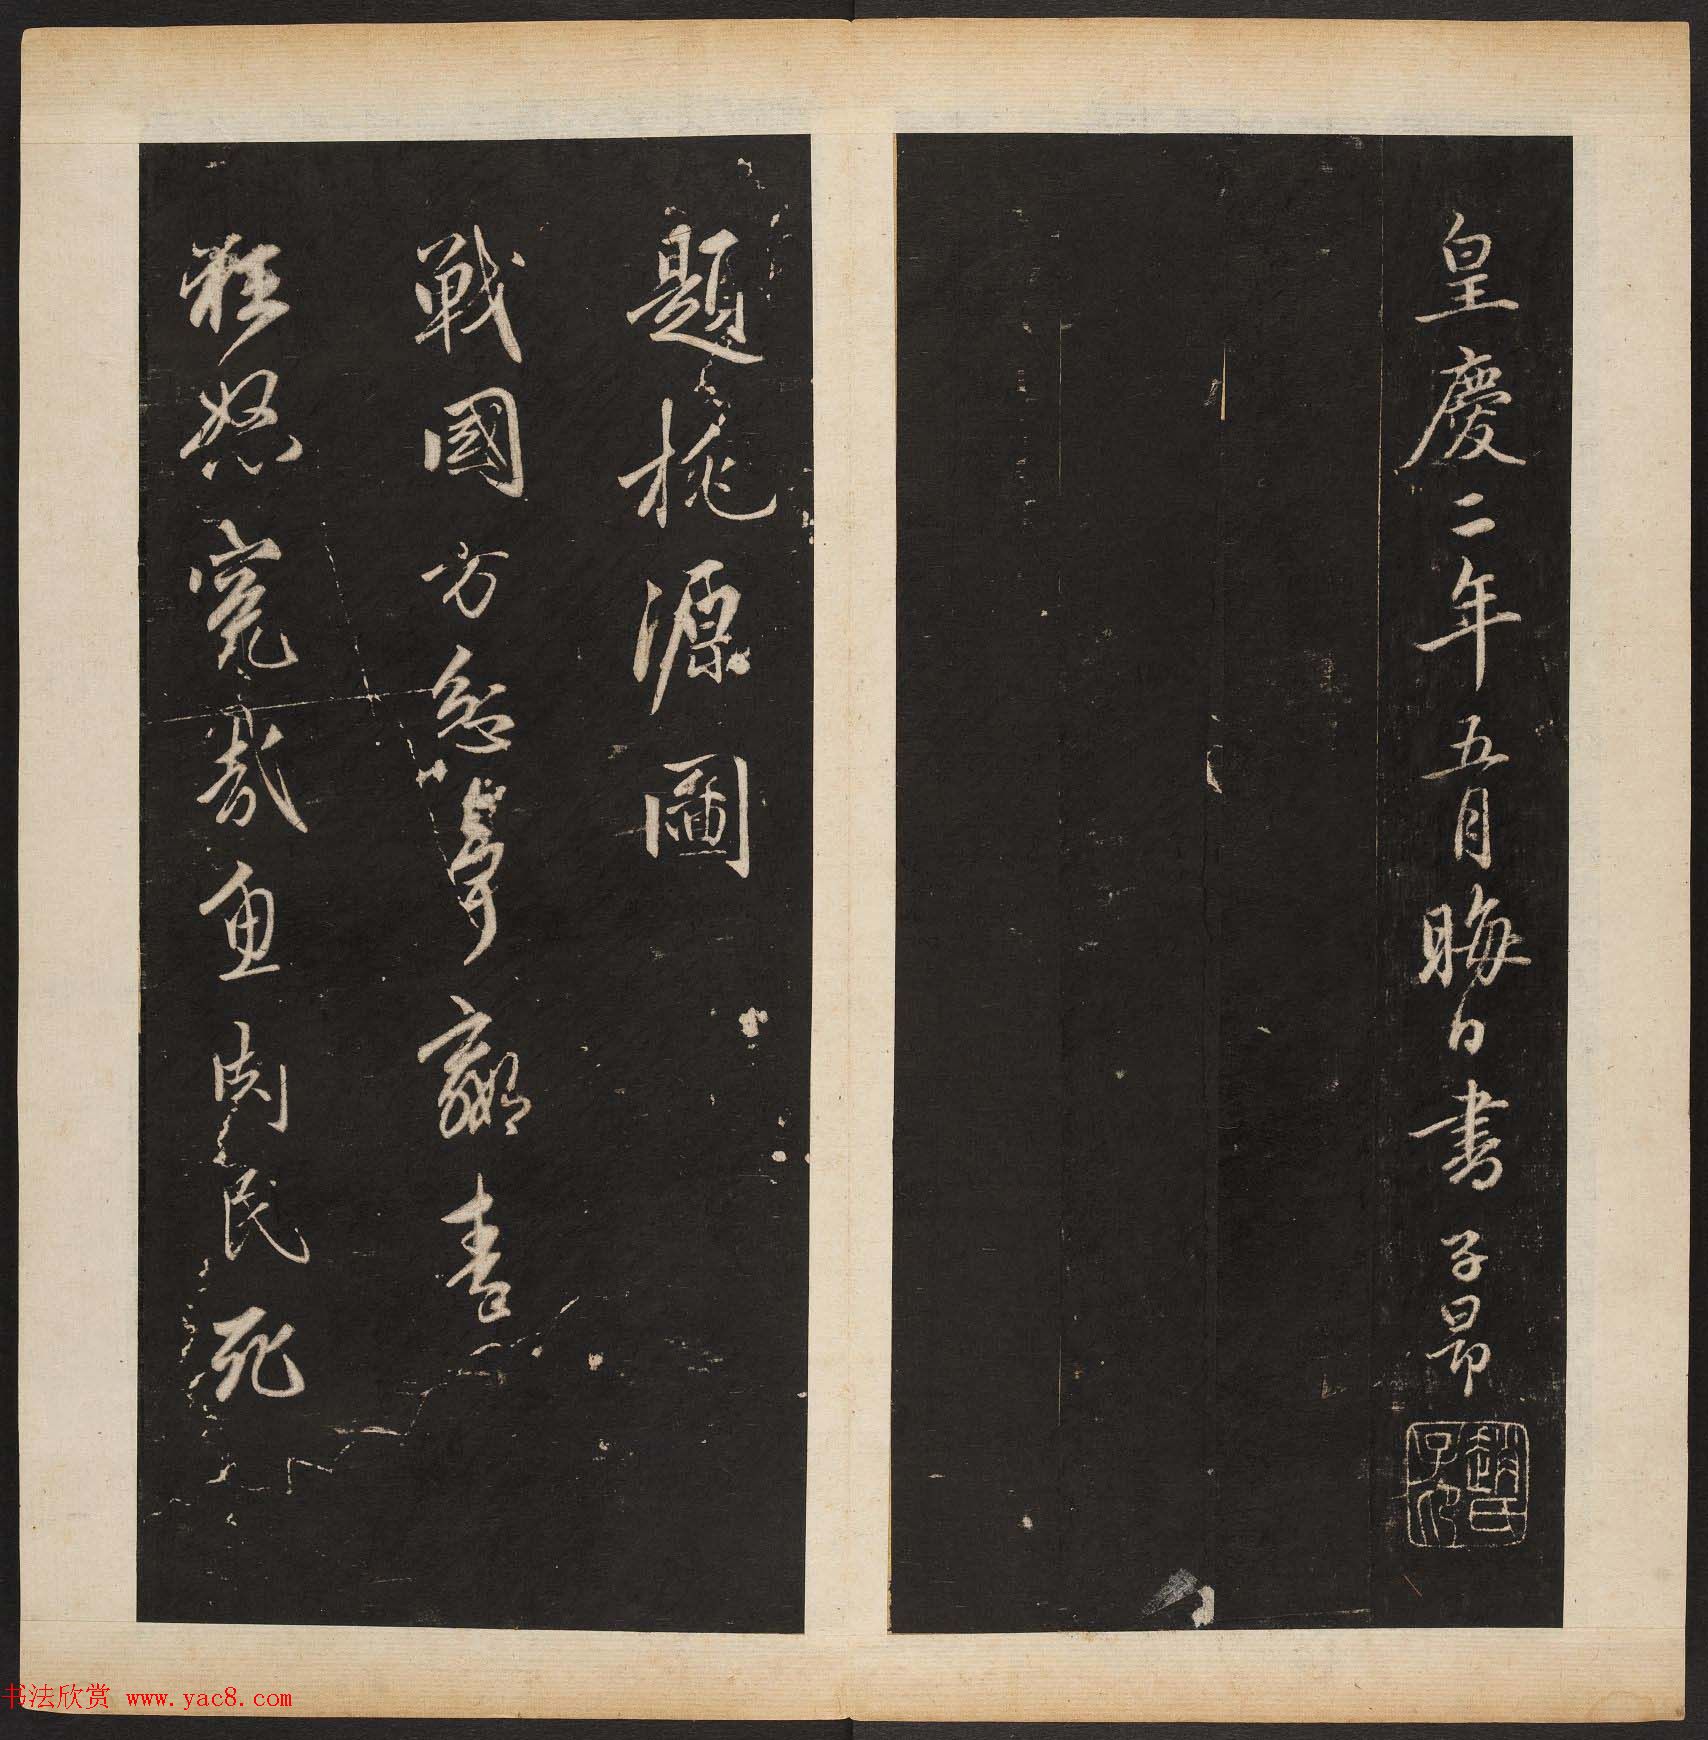 皇慶二年五月晦日書子昂
趙氏子昂
題桃源圖
戰國方忿爭嬴秦
怒冤哉魚肉民死
书法欣赏 www.yac8.com